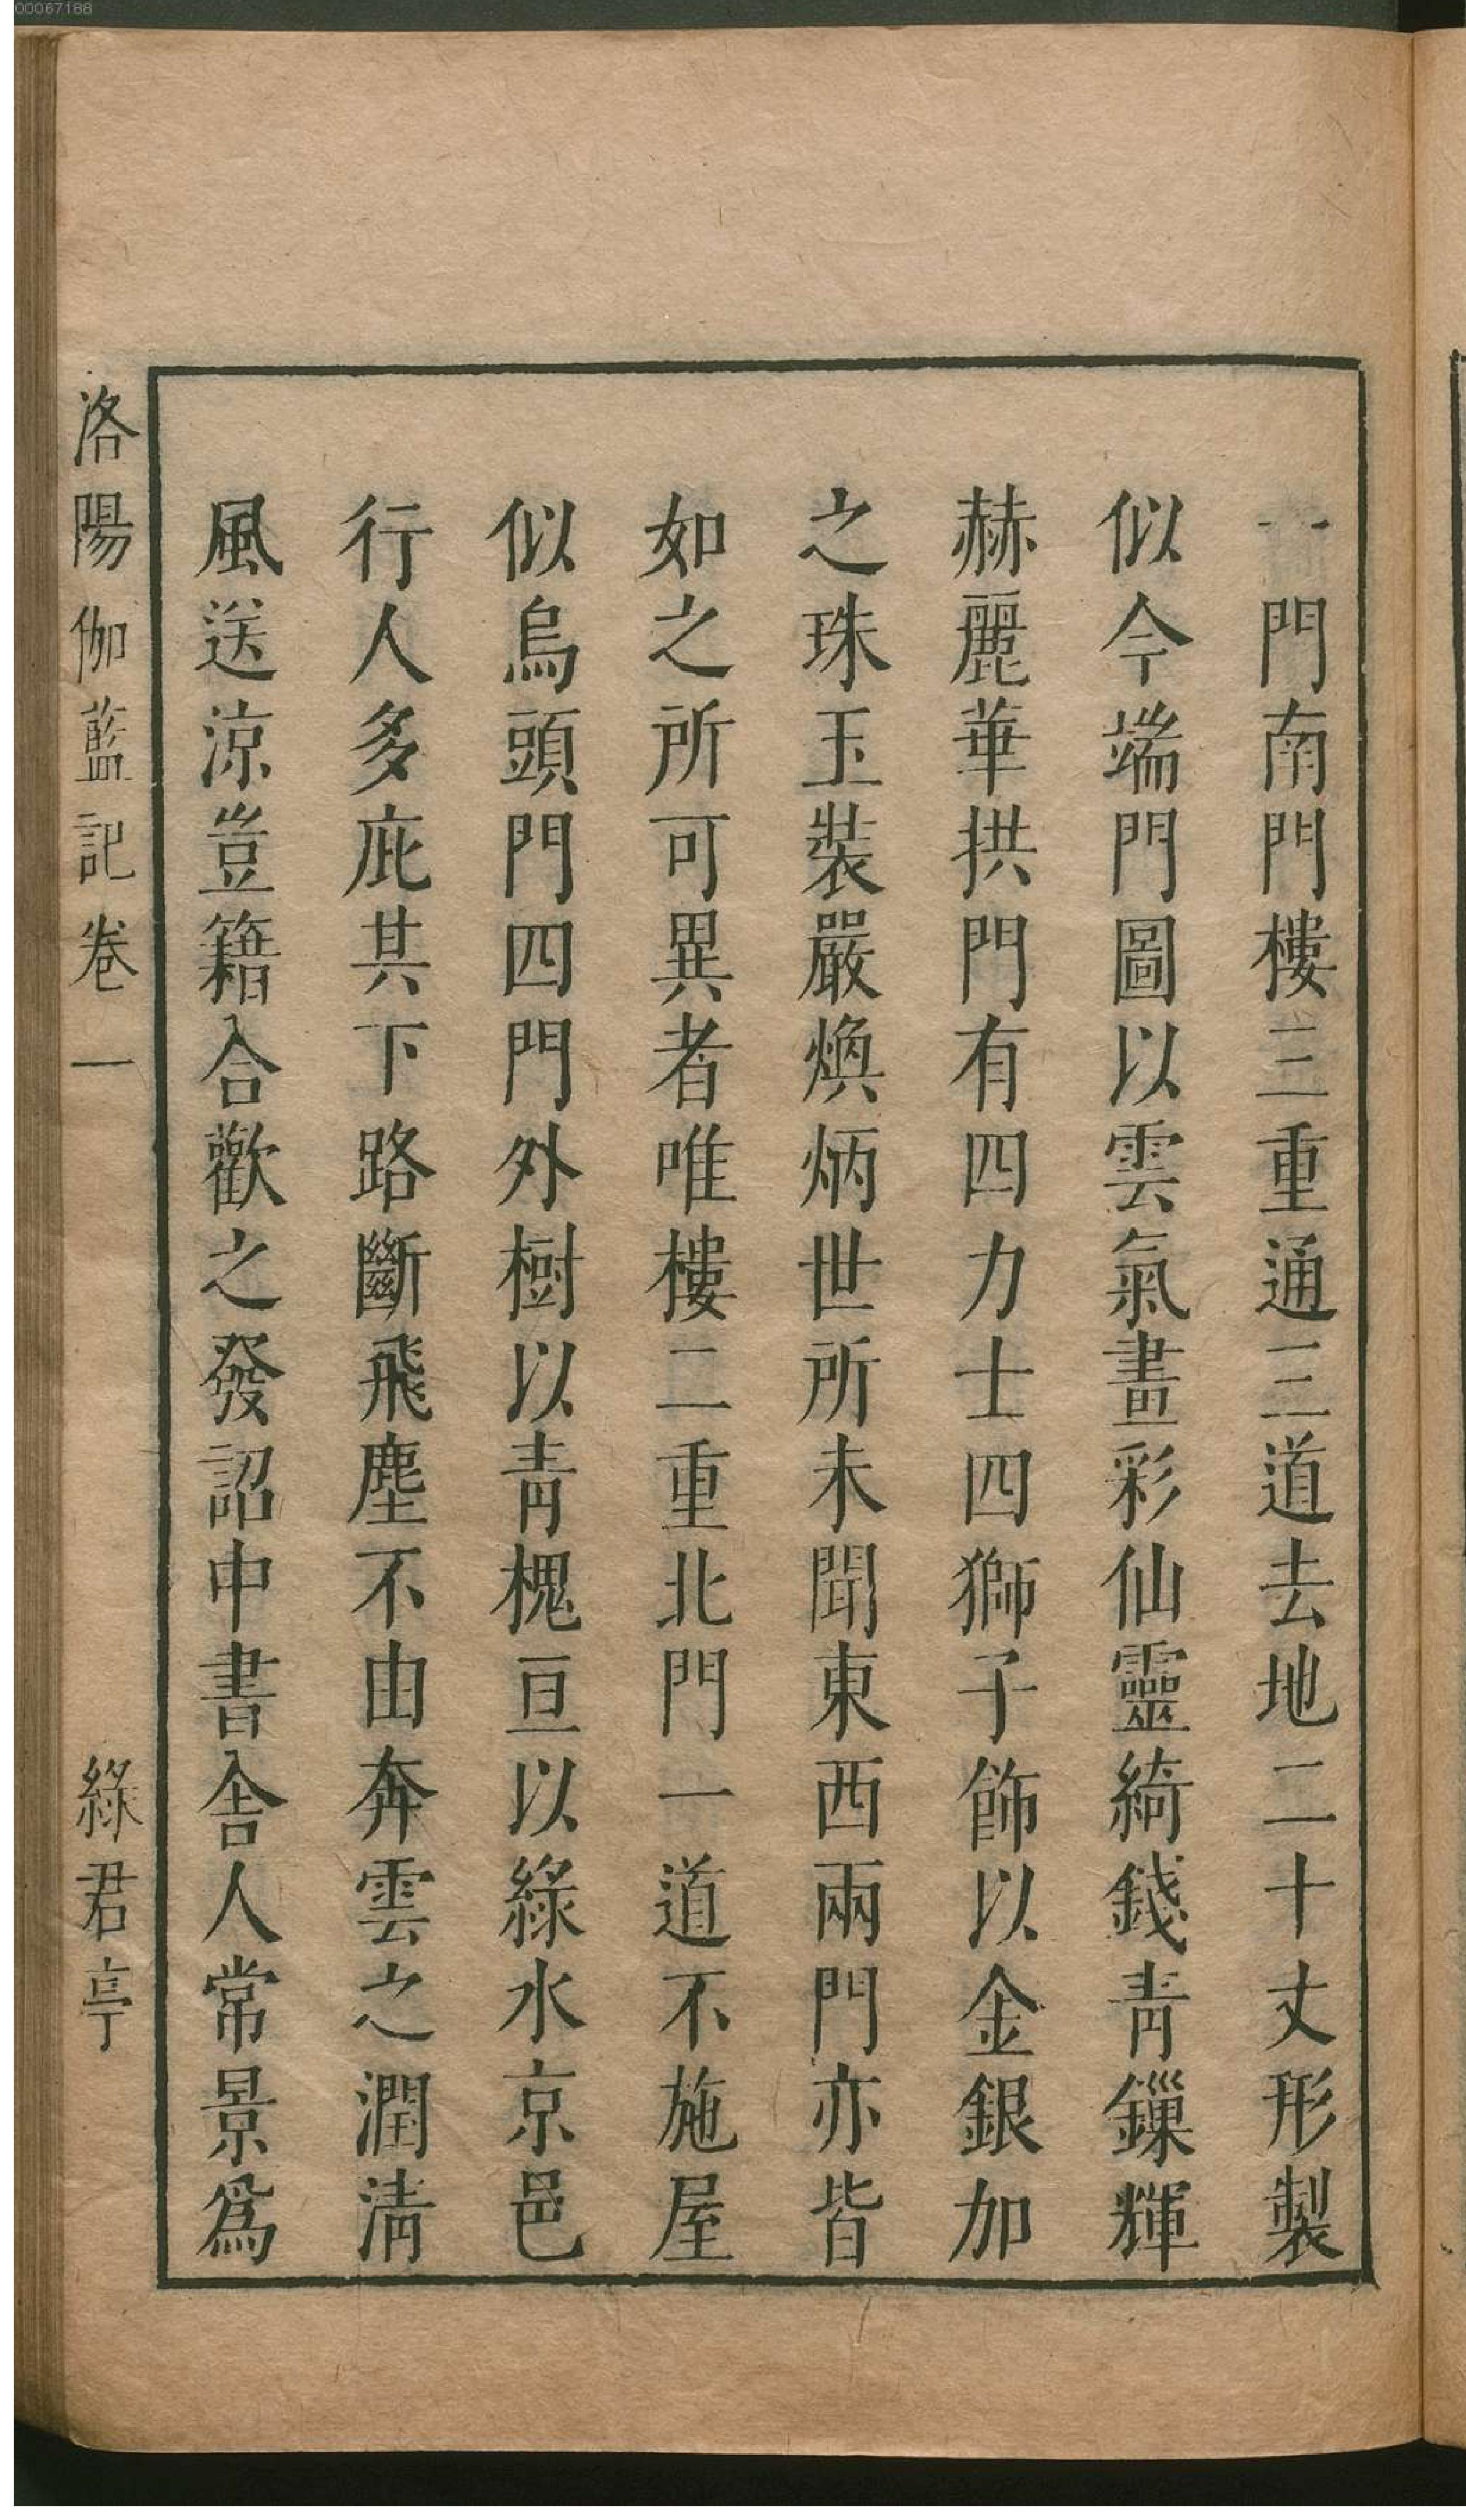 00067188
一門南門樓三重通三道去地二十丈形製
似今端門圖以雲氣畫彩仙靈綺錢青鏁輝
赫麗華拱門有四力士四獅子飾以金銀加
之珠玉裝嚴煥炳世所未聞東西兩門亦皆
如之所可異者唯樓二重北門一道不施屋
似烏頭門四門外樹以青槐亘以綠水京邑
行人多庇其下路斷飛塵不由奔雲之潤清
風送涼豈籍合歡之發詔中書舍人常景爲
洛陽伽藍記卷一 綠君亭